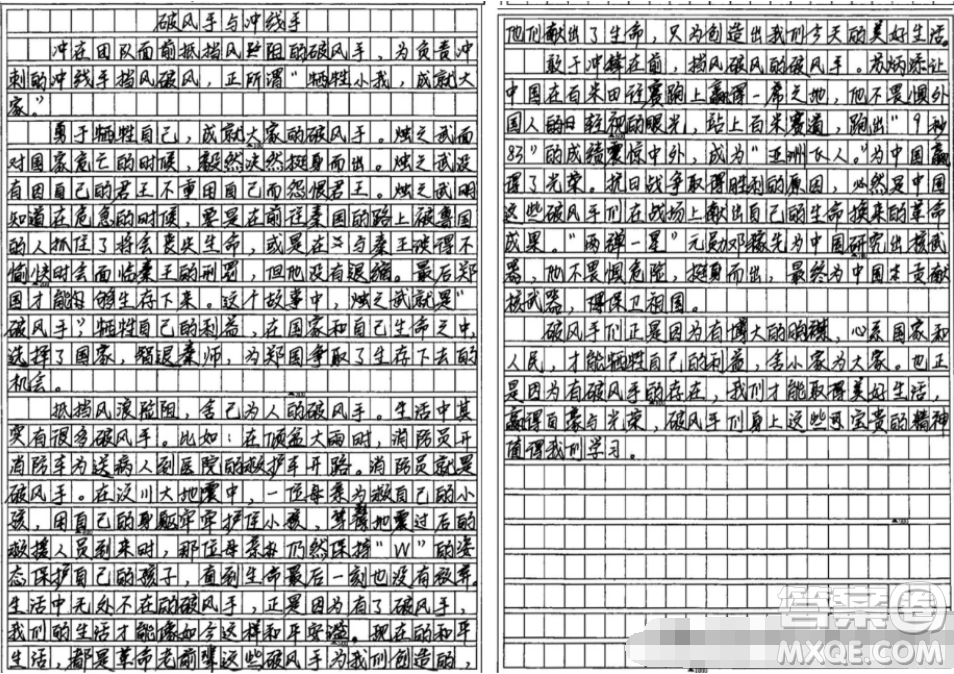 破风手与冲线手
冲在团队面前抵挡风险阻的破风手，为负责冲
刺的冲线手挡风破风，正所谓“牺牲小我，成就大
家。”
勇于牺牲自己，成就大家的破风手。烛之武面
对国家危亡的时候，毅然决然挺身而出。烛之武没
有因自己的君王不重用自己而怨恨君王。烛之武明
知道在危急的时候，要是在前往秦国的路上被晋国
的人抓住了将会丧失生命，或是在与秦王谈得不
愉快时会面临秦王的刑罚，但他没有退缩。最后郑
国才能够生存下来。这个故事中，烛之武就是“
破风手”牺牲自己的利益，在国家和自己生命之中，
选择了国家，智退秦师，为郑国争取了生存下去的
机会。
抵挡风浪险阻，舍己为人的破风手。生活中其
实有很多破风手。比如：在倾盆大雨时，消防员开
消防车为送病人到医院的救护车开路。消防员就是
破风手。在汶川大地震中，一位母亲为救自己的小
孩，用自己的身躯牢牢护住小孩，等地震过后的
救援人员到来时，那位母亲仍然保持“W”的姿
态保护自己的孩子，直到生命最后一刻也没有放弃。
生活中无处不在的破风手，正是因为有了破风手，
我们的生活才能像如今这样和平安溢。现在的和平
生活，都是革命老前辈这些破风手为我们创造的，
他们献出了生命，只为创造出我们今天的美好生活。
敢于冲锋在前，挡风破风的破风手。苏炳添让
中国在百米田径赛跑上赢得一席之地，他不畏惧外
国人的轻视的眼光，站上百米赛道，跑出“9秒
83”的成绩震惊中外，成为“亚洲飞人。”为中国赢
得了光荣。抗日战争取得胜利的原因，必然是中国
这些破风手们在战场上献出自己的生命换来的革命
成果。“两弹一星”元勋邓稼先为中国研究出核武
器，他不畏惧危险，挺身而出，最终为中国贡献
核武器，保卫祖国。
破风手们正是因为有博大的胸襟，心系国家和
人民，才能牺牲自己的利益，舍小家为大家。也正
是因为有破风手的存在，我们才能取得美好生活，
赢得自豪与光荣，破风手们身上这些宝贵的精神
值得我们学习。
答案圈
MXQE.COM